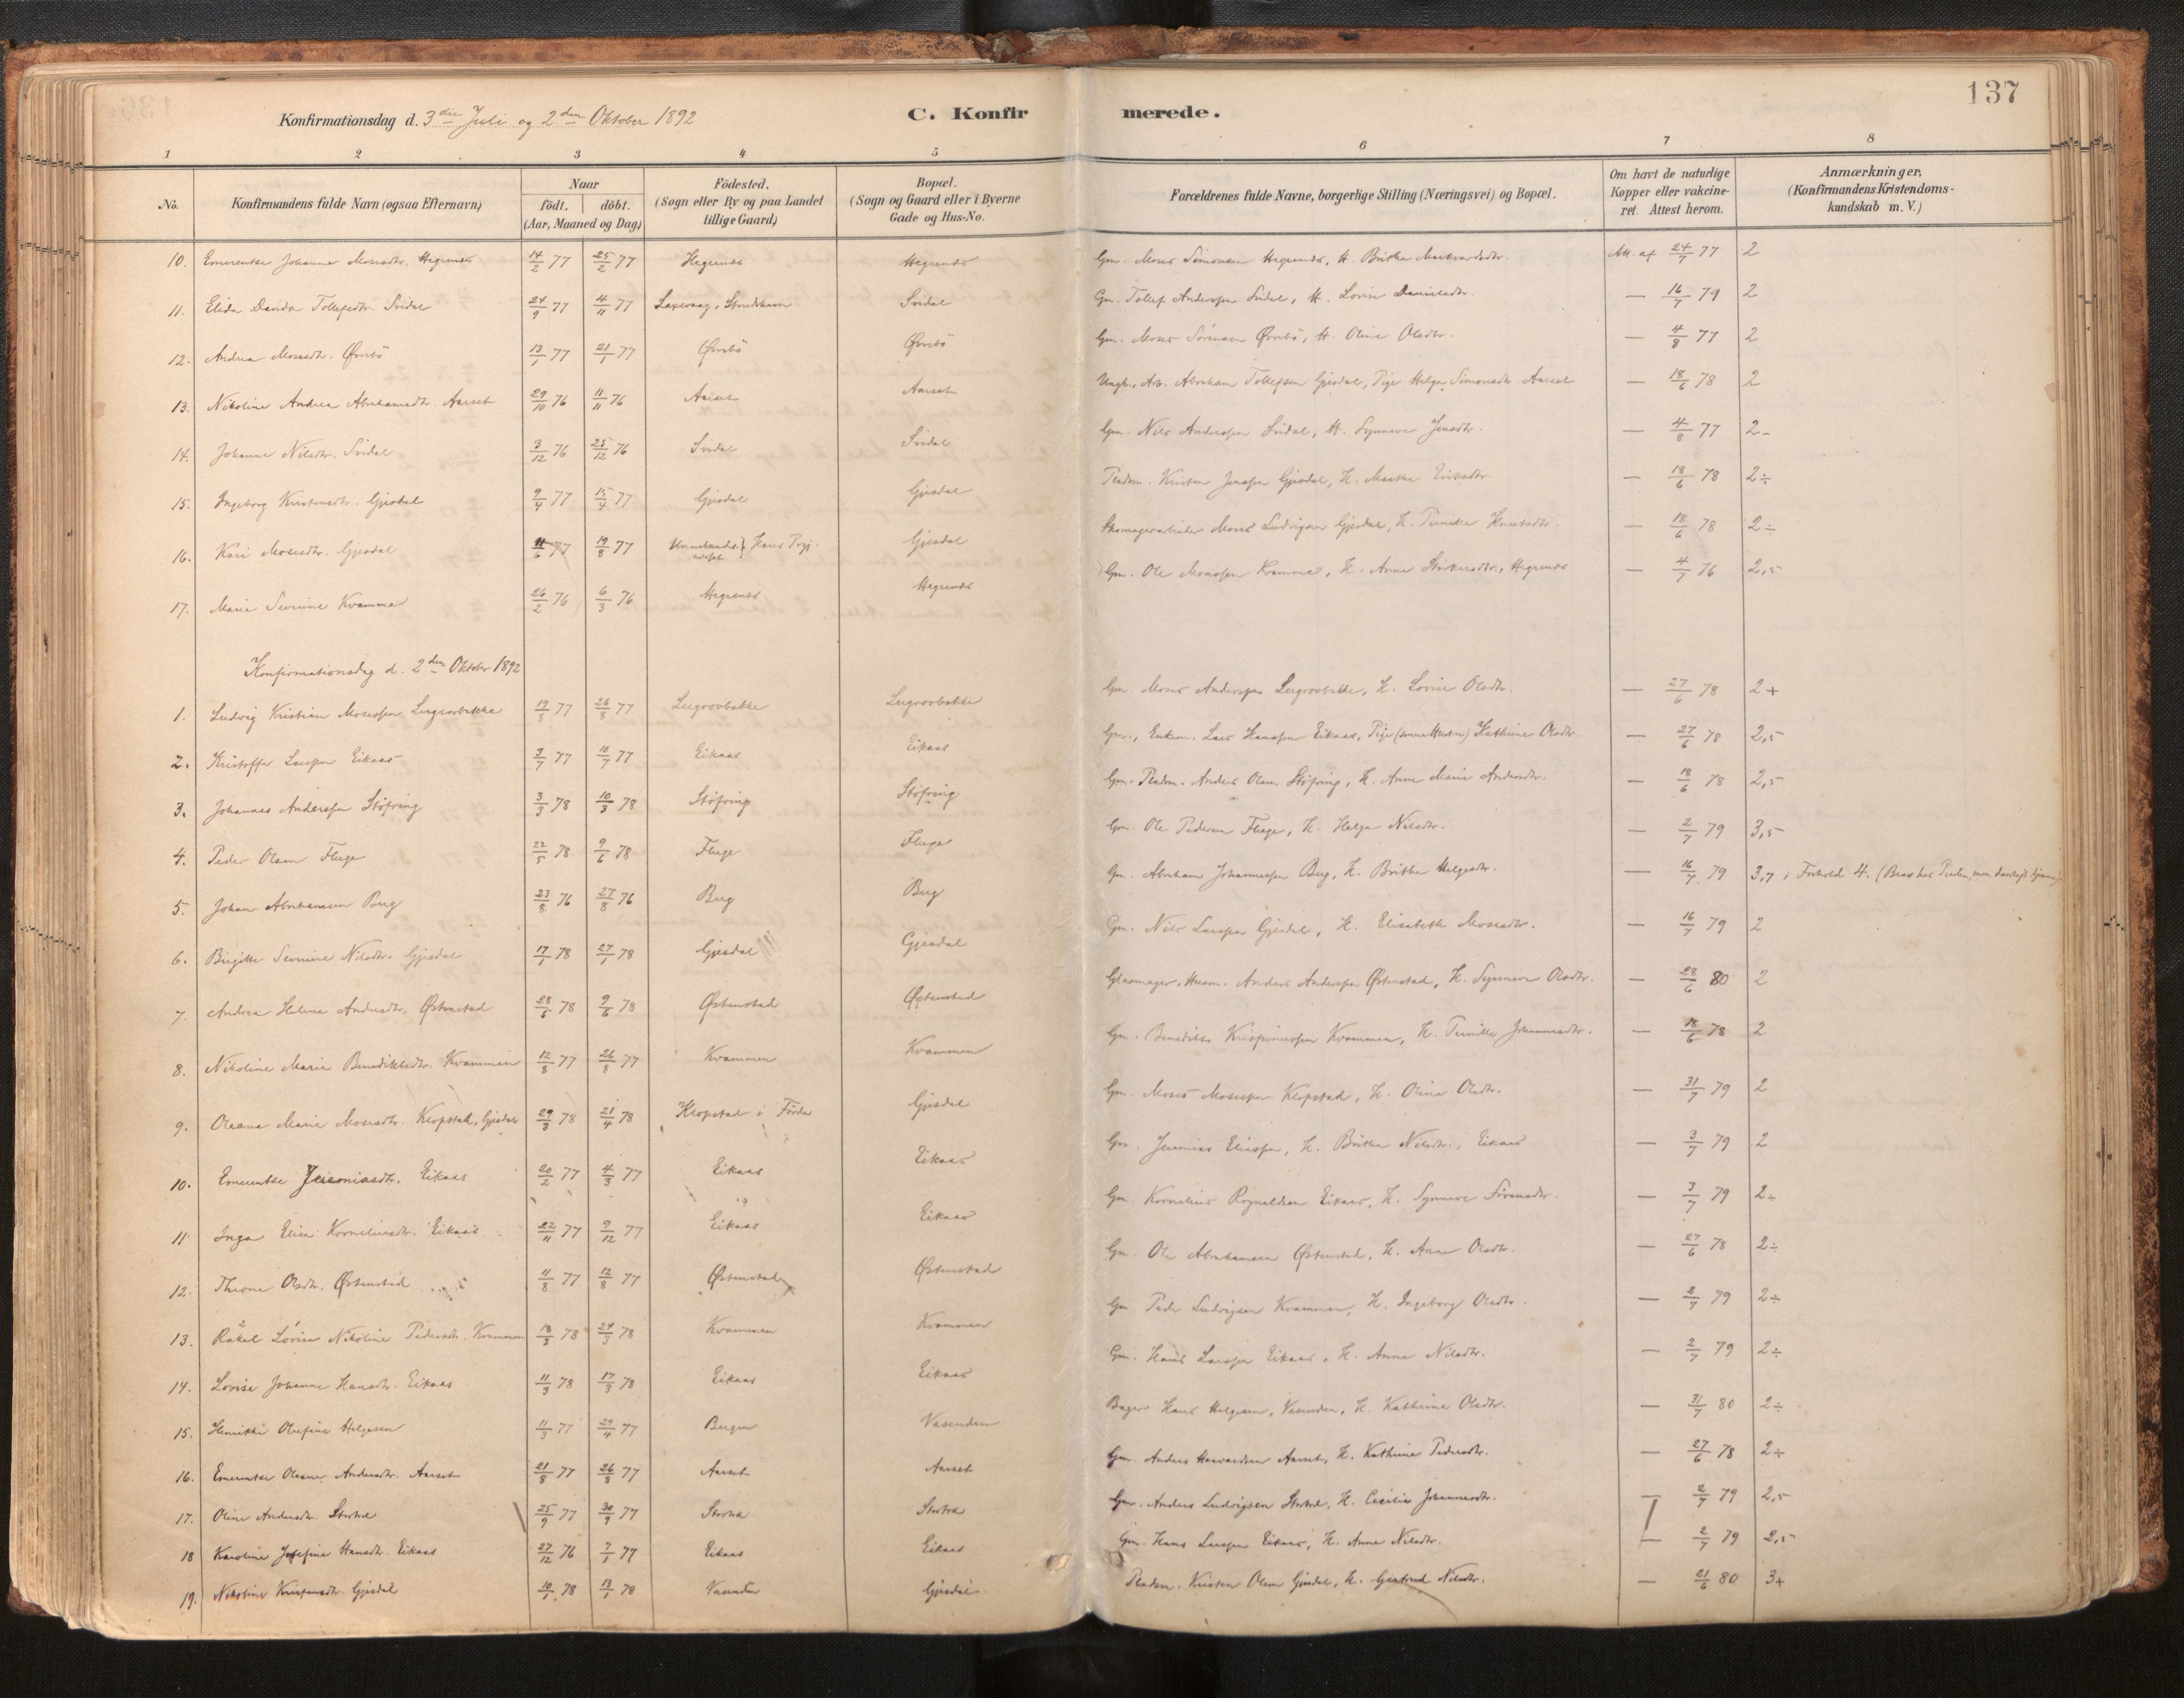 137
Konfirmationsdag d. 3die Juli og 2den Oktober 1892
C. Konfirmerede.
1 2 3 4 5 6 7 8
No. Konfirmandens fulde Navn (ogsaa Efternavn) Naar födt. döbt. (Aar, Maaned og Dag) Födested. (Sogn eller By og paa Landet tillige Gaard) Bopæl. (Sogn og Gaard eller i Byerne Gade og Hus-No. Forældrenes fulde Navne, borgerlige Stilling (Næringsvei) og Bopæl. Om havt de naturlige Kopper eller vakcineret. Attest herom. Anmærkninger, (Konfirmandens Kristendomskundskab m. V.)
10. Emerentse Johanne Mosesdtr. Hegrenes 14/2 77 25/2 77 Hegrenes Hegrenes Gm. Moses Simonsen Hegrenes, H. Brithe Att. af 24/7 77 2
11. Elida Danida Tollefsdtr. Svidal 24/9 77 4/11 77 Laxevaag, Svidal Gm. Tollef Andersen Svidal, H. Lovise Danielsdtr. — 16/7 79 2
12. Andrea Mosesdtr. Ørvebö 13/1 77 21/1 77 Ørvebö Ørvebö Gm. Moses Sörensen Ørvebö, H. Oline Olsdtr. — 4/8 77 2
13. Nikoline Andrea Abrahamsdtr. Aarset 29/10 76 11/11 76 Aarset Aarset Ungk., Arb. Abraham Tollefsen Gjesdal, Pige Helga Simonsdtr. Aarset — 18/6 78 2
14. Johanne Nilsdtr. Svidal 3/12 76 25/12 76 Svidal Svidal Gm. Nils Andersen Svidal, H. Synneve Jonsdtr. — 4/8 77 2-
15. Ingeborg Kristensdtr. Gjesdal 9/4 77 15/4 77 Gjesdal Gjesdal Pladsm. Kristen Jensen Gjesdal, H. Marthe — 18/6 78 2÷
16. Kari Mosesdtr. Gjesdal 11/6 77 19/8 77 Gjesdal Skomagerarbeider Moses Ludvigsen Gjesdal, H. Pernille Knutsdtr. — 18/6 78 2÷
17. Marie Severine Kvamme 26/2 76 6/3 76 Hegrenes Hegrenes Gm. Ole Monssen Kvamme, H. Anne Hegrenes — 4/7 76 2,5
Konfirmationsdag d. 2den Oktober 1892
1. Ludvig Kristian Mosessen Lugrovbakke 19/8 77 26/8 77 Lugrovbakke Lugrovbakke Gm. Moses Andersen Lugrovbakke, H. Lovise Olsdtr. — 27/6 78 2+
2. Kristoffer Larssen Eikaas 3/7 77 10/7 77 Eikaas Eikaas Gm., Enkem. Lars Hanssen Eikaas, Pige Kathrine Olsdtr. — 27/6 78 2,5
3. Johannes Anderssen Støfring 3/3 78 10/3 78 Støfring Støfring Gm. Pladsm. Anders Olsen Støfring, H. Anne Marie Andersdtr. — 18/6 78 2,5
4. Peder Olsen Fluge 22/5 78 9/6 78 Fluge Fluge Gm. Ole Pedersen Fluge, H. Helga Nilsdtr. — 2/7 79 3,5
5. Johan Abrahamsen Berg 23/8 76 27/8 76 Berg Berg Gm. Abraham Johannessen Berg, H. Brithe Helgesdtr. — 16/7 79 3,7 i Forhold 4.
6. Birgitte Severine Nilsdtr. Gjesdal 17/1 78 27/1 78 Gjesdal Gjesdal Gm. Nils Larssen Gjesdal, H. Elisabeth Mosesdtr. — 16/7 79 2
7. Andrea Helene Andersdtr. Østenstad 28/5 78 9/6 78 Østenstad Østenstad Glasmager, Husm. Anders Anderssen Østenstad, H. Synneve Olsdtr. — 28/6 80 2
8. Nikoline Marie Benediktsdtr. Kvammen 12/8 77 26/8 77 Kvammen Kvammen Gm. Benedikt Krispinussen Kvammen, H. Pernille Johannesdtr. — 18/6 78 2
9. Oleane Marie Mosesdtr. Klopstad, Gjesdal 29/3 78 21/4 78 Klopstad i Förde Gjesdal Gm. Moses Mosessen Klopstad, H. Oline Olsdtr. — 31/7 79 2
10. Emerentse Jeremiasdtr. Eikaas 20/2 77 4/3 77 Eikaas Eikaas Gm. Jeremias Eliassen, H. Brithe Nilsdtr., Eikaas — 3/7 79 2
11 Inga Elise Korneliusdtr. Eikaas 22/11 77 9/12 77 Eikaas Eikaas Gm. Kornelius Rognaldsen Eikaas, H. Synneve Sörensdtr. — 3/7 79 2÷
12. Thrine Olsdtr. Østenstad 11/8 77 12/8 77 Østenstad Østenstad Gm. Ole Abrahamsen Østenstad, H. Anne Olsdtr. — 27/6 78 2÷
13. Rakel Lovise Nikoline Pedersdtr. Kvammen 18/3 78 24/3 78 Kvammen Kvammen Gm. Peder Ludvigsen Kvammen, H. Ingeborg Olsdtr. — 2/7 79 2÷
14. Lovise Johanne Hansdtr. Eikaas 11/3 78 17/3 78 Eikaas Eikaas Gm. Hans Larssen Eikaas, H. Anne Nilsdtr. — 2/7 79 2÷
15. Henrikke Olufine Helgesen 11/3 77 29/4 77 Bergen Vasenden Bager Hans Helgesen, Vasenden, H. Kathrine Olsdtr. — 31/7 80 2÷
16. Emerentse Oleane Andersdtr. Aarset 21/8 77 26/8 77 Aarset Aarset Gm. Anders Haavardsen Aarset, H. Kathrine Pedersdtr. — 27/6 78 2÷
17. Oline Andersdtr. Stortræ 25/9 77 30/9 77 Stortræ Stortræ Gm. Anders Ludvigsen Stortræ, H. Cecilie Johannesdtr. — 2/7 79 2,5
18 Karoline Josefine Hansdtr. Eikaas 27/12 76 7/1 77 Eikaas Eikaas Gm. Hans Larssen Eikaas, H. Anne Nilsdtr. — 2/7 79 2,5
19. Nikoline Kristensdtr. Gjesdal 10/1 78 13/1 78 Vasenden Gjesdal Pladsm. Kristen Olsen Gjesdal, H. Gjertrud Nilsdtr. — 21/6 80 3+